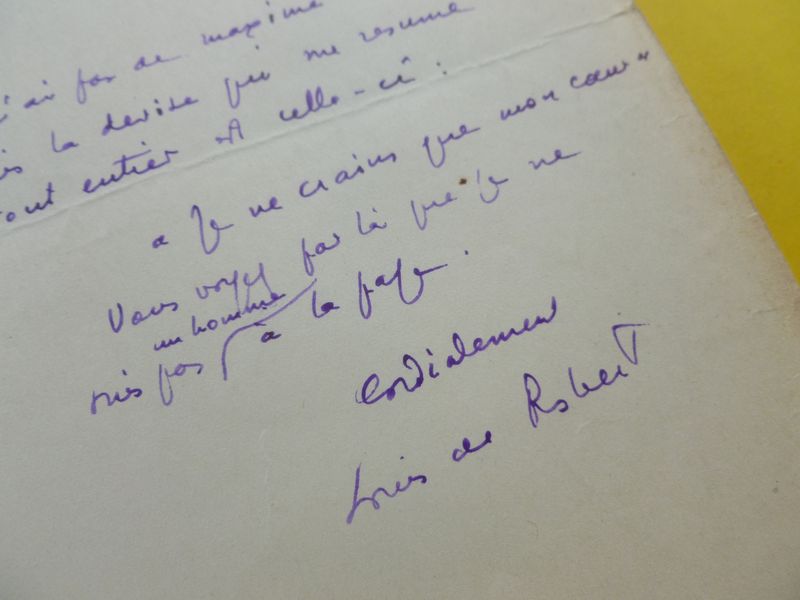 ai pas de maxime
la devise qui me resume
tout entier A celle-ci :
« Je ne crains que mon cœur »
Vous voyez par là que je ne
un homme
suis pas à la page.
Cordialement
Louis de Robert